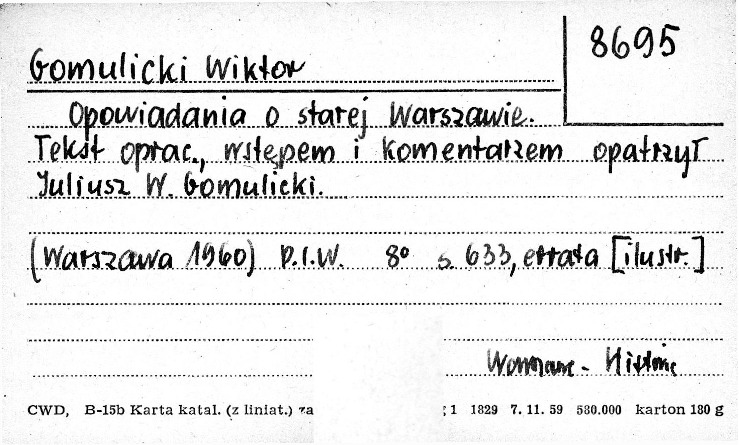 8695
Gomulicki Wiktor
Opowiadania o starej Warszawie.
Tekst oprac., wstępem i komentarzem opatrzył
Juliusz W. Gomulicki.
(Warszawa 1960) P.I.W. 8° s. 633, errata [ilustr.]
CWD, B-15b Karta katal. (z liniat.) za 1 1829 7. 11. 59 580.000 karton 180 g